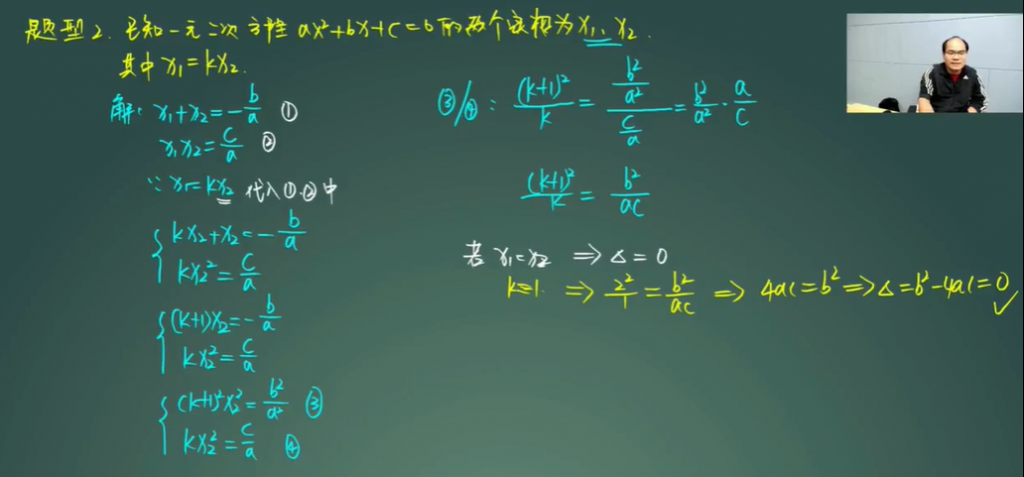 题型2. 已知一元二次方程 ax²+bx+c=0的两个实根为x₁、x₂.
其中 x₁=kx₂.
解: x₁+x₂=-b/a ①
x₁x₂=c/a ②
∵ x₁=kx₂ 代入①.②中
{kx₂+x₂=-b/a
kx₂²=c/a
{(k+1)x₂=-b/a
kx₂²=c/a
{(k+1)²x₂²=b²/a² ③
kx₂²=c/a ④
③/④: (k+1)²/k=(b²/a²)/(c/a)=b²/a²·a/c
(k+1)²/k=b²/ac
若 x₁=x₂ ⇒ Δ=0
k=1. ⇒ 2²/1=b²/ac ⇒ 4ac=b²⇒Δ=b²-4ac=0 ✓